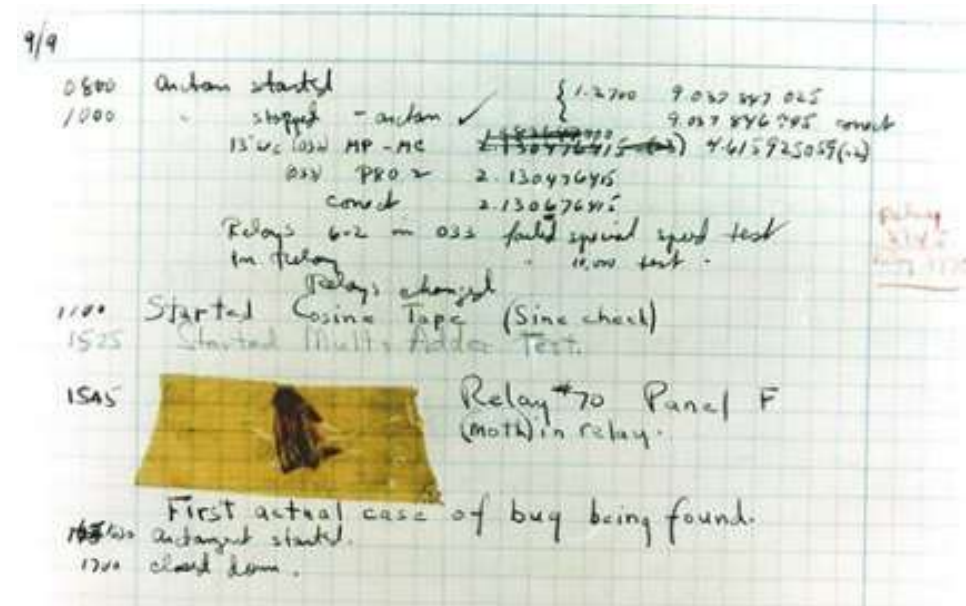 9/9
0800 Antan started
1000 " stopped - antan ✓ { 1.2700 9.037 847 025
9.037 846 995 conect
13"uc (032) MP - MC 2.130476415 4.615925059(-2)
(033) PRO 2 2.130476415
conect 2.130676415
Relays 6-2 in 033 failed special speed test
In Relay " 10,000 test .
Relays changed
1100 Started Cosine Tape (Sine check)
1525 Started Mult+Adder Test.
1545 Relay #70 Panel F
(moth) in relay.
First actual case of bug being found.
1630 antangent started.
1700 closed down .
Relay